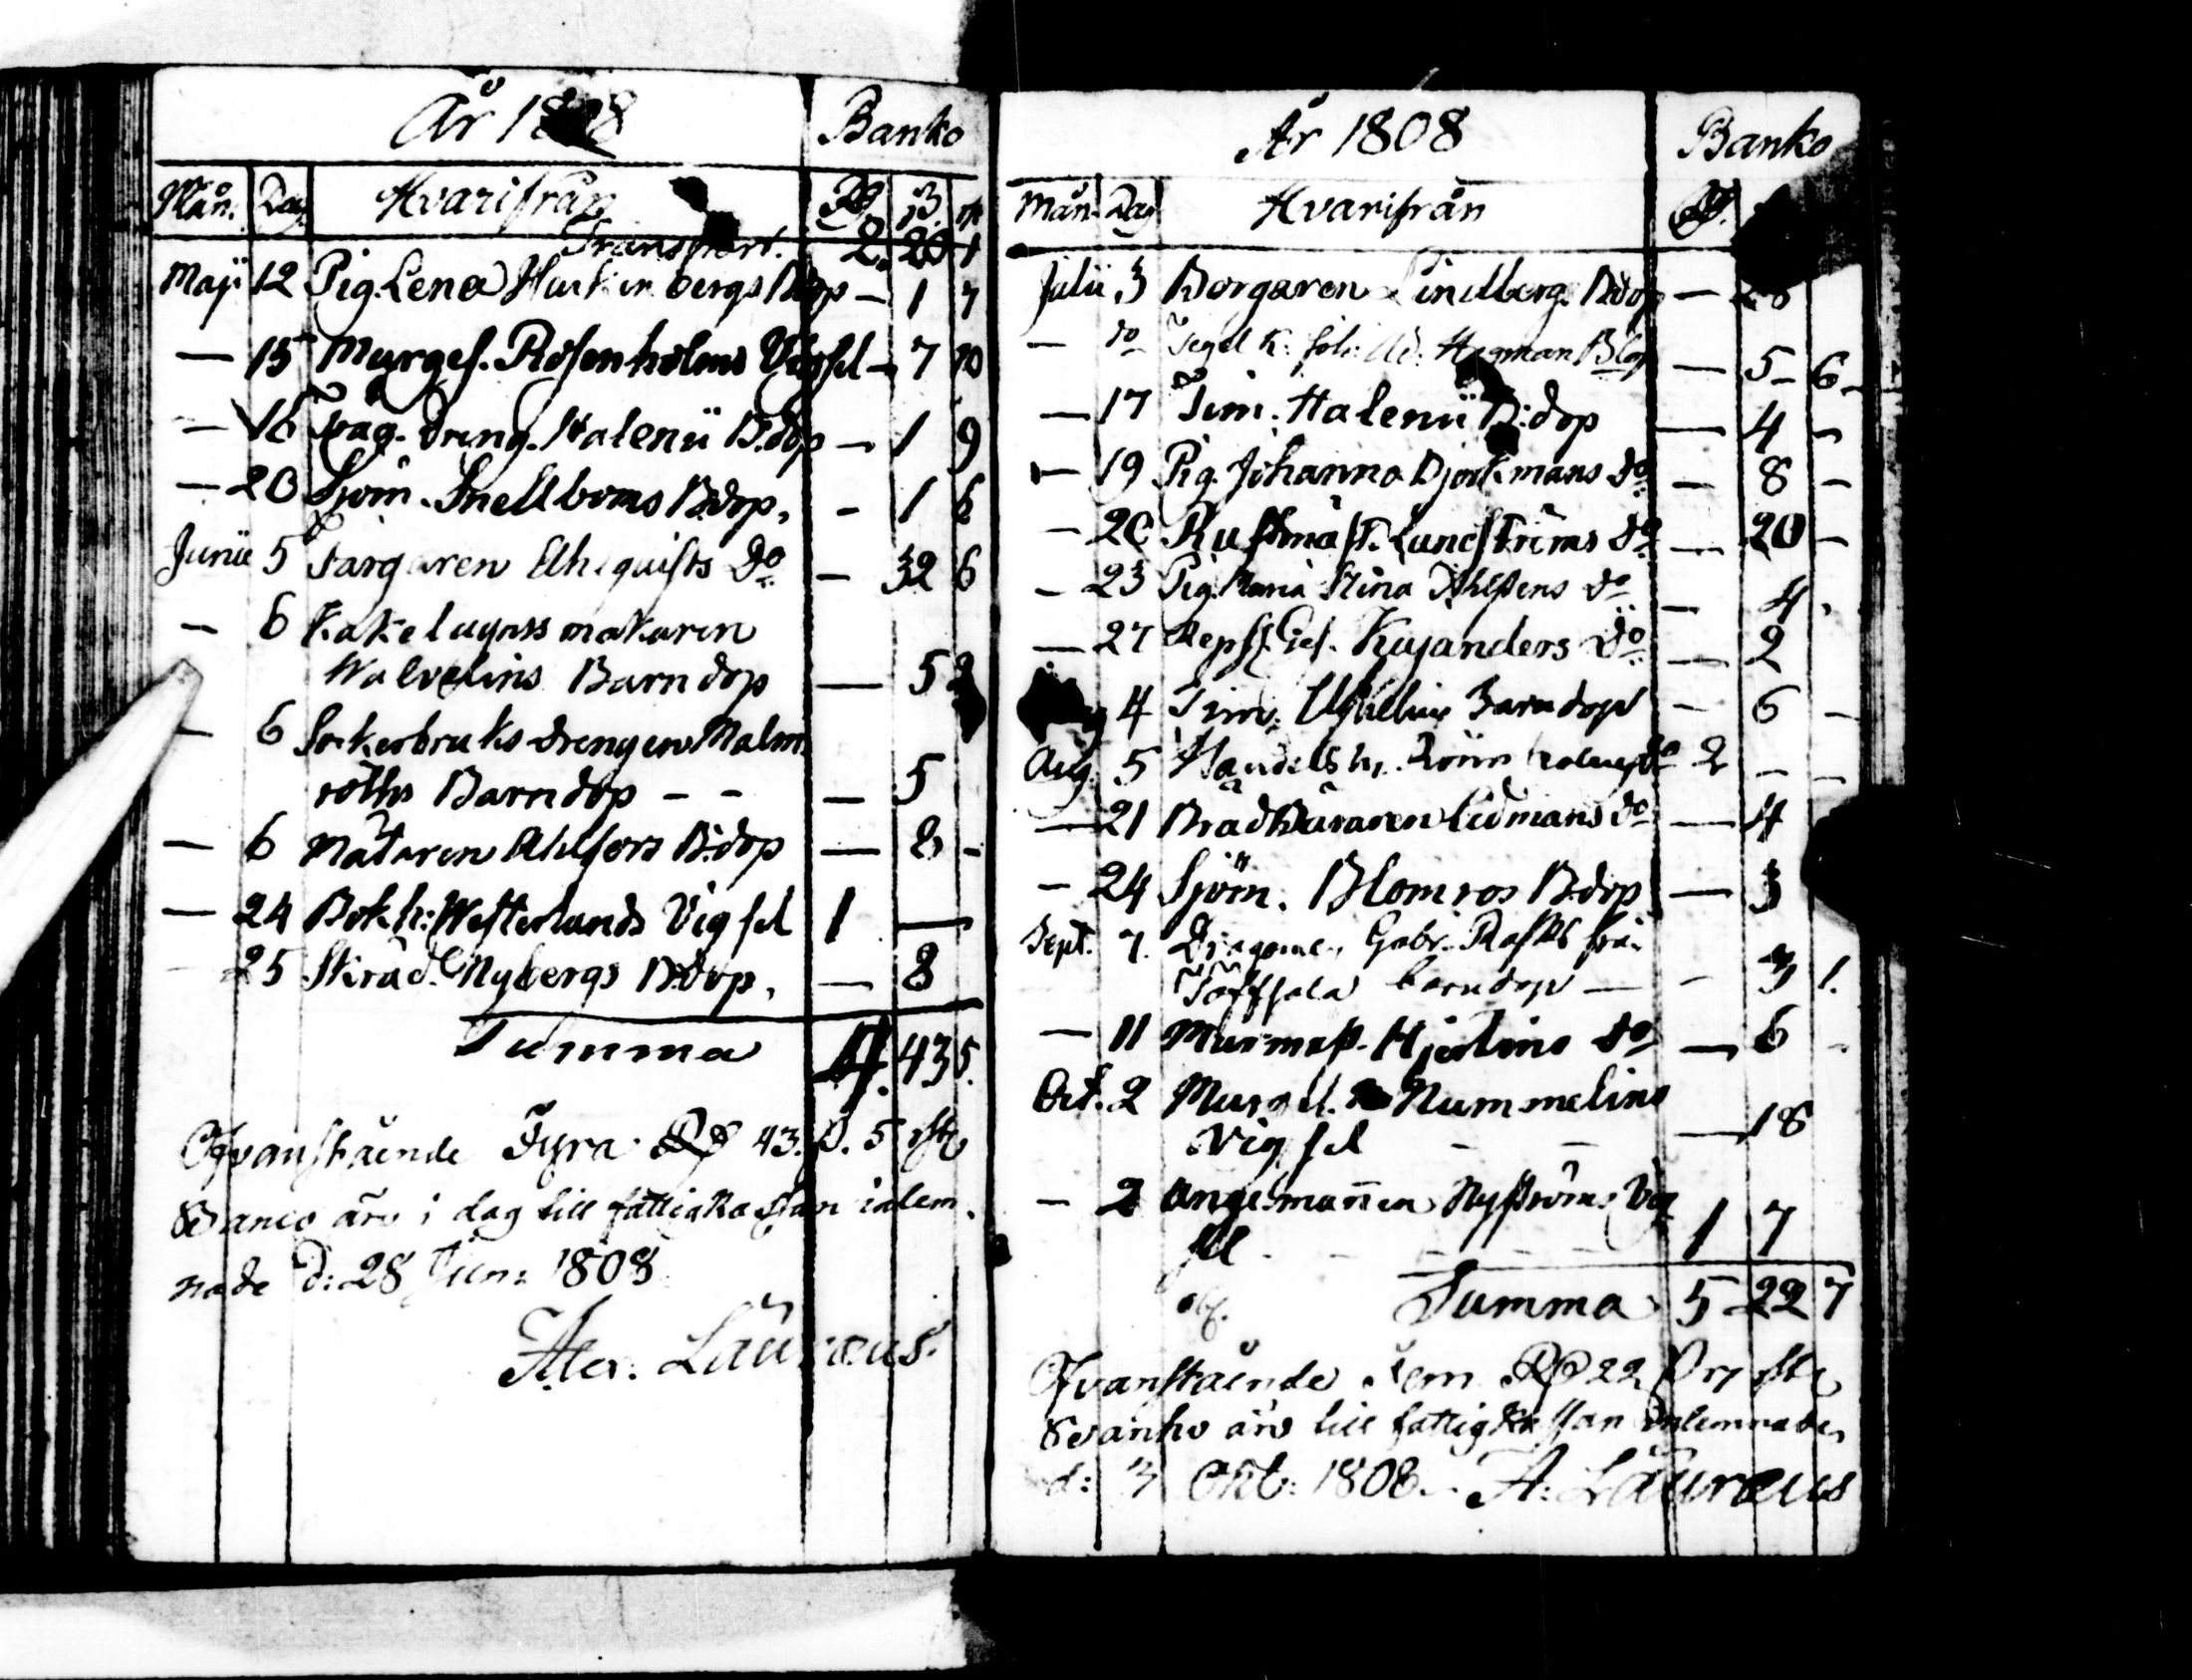 År 1808 Banko
Mån. Dag. Hvarifrån Rd. ß. rst
Transport. 2. 20 1
Maji 12 Pig. Lena bergs B:dop — 1 7
— 15 Murges. Rosenholms Vigsel — 7 10
— 16 Dräng. Walenii B:dop — 1 9
— 20 Sjöm. Snellboms B:dop. - 1 6
Junii 5 Färgaren quists Do — 32 6
— 6 Kakelugnsmakaren
Walvelins Barndop — 5 2
— 6 Sockerbruks drengen Malm
roths Barndop - - — 5
— 6 Mätaren Ahlfors B:dop — 8 -
— 24 Bokh: Westerlunds Vigsel 1 —
— 25 Skräd. Nybergs B:dop. — 8
Summa 4. 43 5.
Ofvanstående Fyra Rd 43. ß. 5 rst
Banco äro i dag till fattigkassan inlem
nade d: 28 Jun: 1808
Alex. Lauræus.
År 1808 Banko
Mån. Dag Hvarifrån Rd.
Julii 3 Borgaren Lindberg. B:dop —
— do Ad: Hagman B:dop — 5 - 6 -
— 17 Tim. Halenii B:dop — 4 -
— 19 Pig. Johanna Björkmans do — 8 -
— 20 Rustmäst. Lundströms do — 20 -
— 23 Pig. Maria Stina do — 4
— 27 Repsl. Ges. Kajanders do — 2
4 Tim. Barndop — 6 -
Aug. 5 Handelsm. do 2 - -
— 21 Brädbäraren Lidmans do — 4
— 24 Sjöm. Blomros B:dop — 3
Sept. 7. Dragone. Gabr. Rasks frå.
Töffsala barndop — - 3 1.
— 11 Murmäst. Hjerlins do — 6 -
Oct. 2 Murges. Nummelins
Vigsel - - — 18
— 2 Angelmannen Nyströms Vig
sel - - - - 1 7
Summa 5 22 7
Ofvanstående Fem Rd 22 ß 7 rst
Banko äro till fattigkassan inlemnade
d: 3 Okt: 1808. A: Lauræus